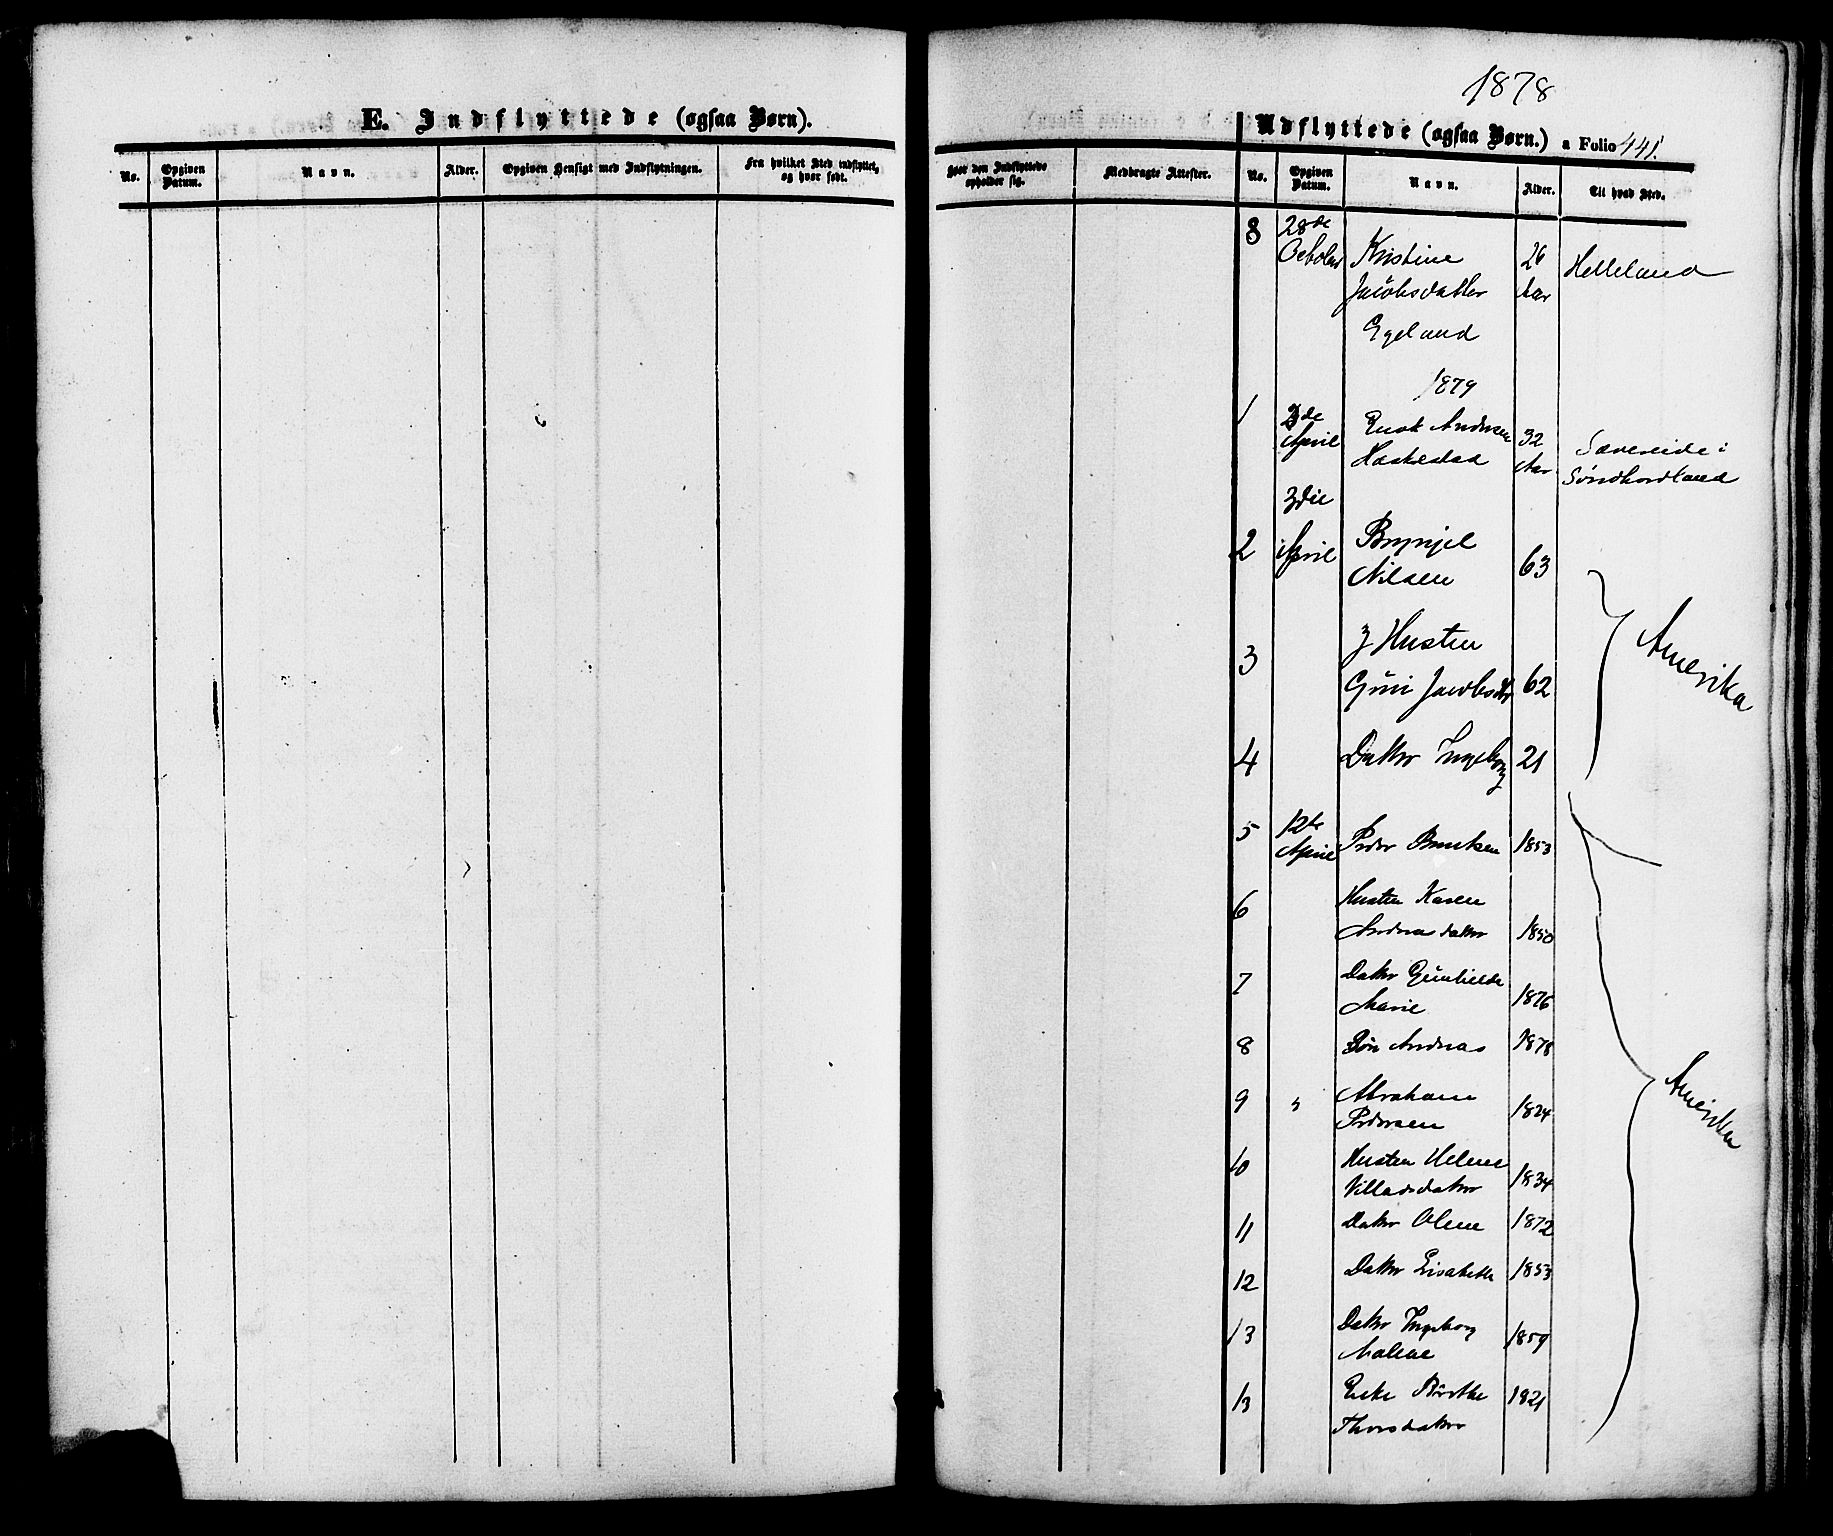 E. Indflyttede (ogsaa Børn).
No.
Opgiven Datum.
Navn.
Alder.
Opgiven Hensigt med Indflytningen.
Fra hvilket Sted indflyttet, og hvor født.
1878
Udflyttede (ogsaa Børn.) a Folio 441.
Hvor den Indflyttede opholder sig.
Medbragte Attester.
No.
Opgiven Datum.
Navn.
Alder.
Til hvad Sted.
8 28de October Kristine 26 Aar Helleland
Jacobsdatter
Egeland
1879
1 2de April Enok Andersen 32 Aar Sævereide i
Søndhordland
3die
2 April Brynjel
Nilsen 63
3 Husten
Guri Jacobsdtr 62
Amerika
4 Datter Ingeborg 21
5 12te April Peder Bentsen 1853
6 Husten Karen
Andreasdatter 1850
7 Datter Gunhilde
Marie 1876
8 Søn Andreas 1878
9 " Abraham
Pedersen 1824
Amerika
10 Husten Helene
Villadsdatter 1834
11 Datter Olene 1872
12 Datter Lisabeth 1853
13 Datter Ingeborg
Malene 1859
13 Enke Børthe 1821
Thorsdatter